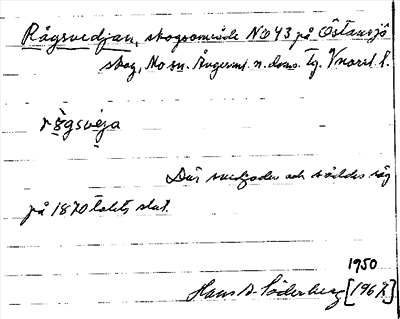 Rågsvedjan, skogsområde No 43 på Östansjö
skog, Mo sn. Ångerml. n. doms. Tg. Vnorrl. l.
rågsvèja
Där svedjades och såddes råg
på 1870 talets slut.
1950
Hans A. Söderberg [1967]